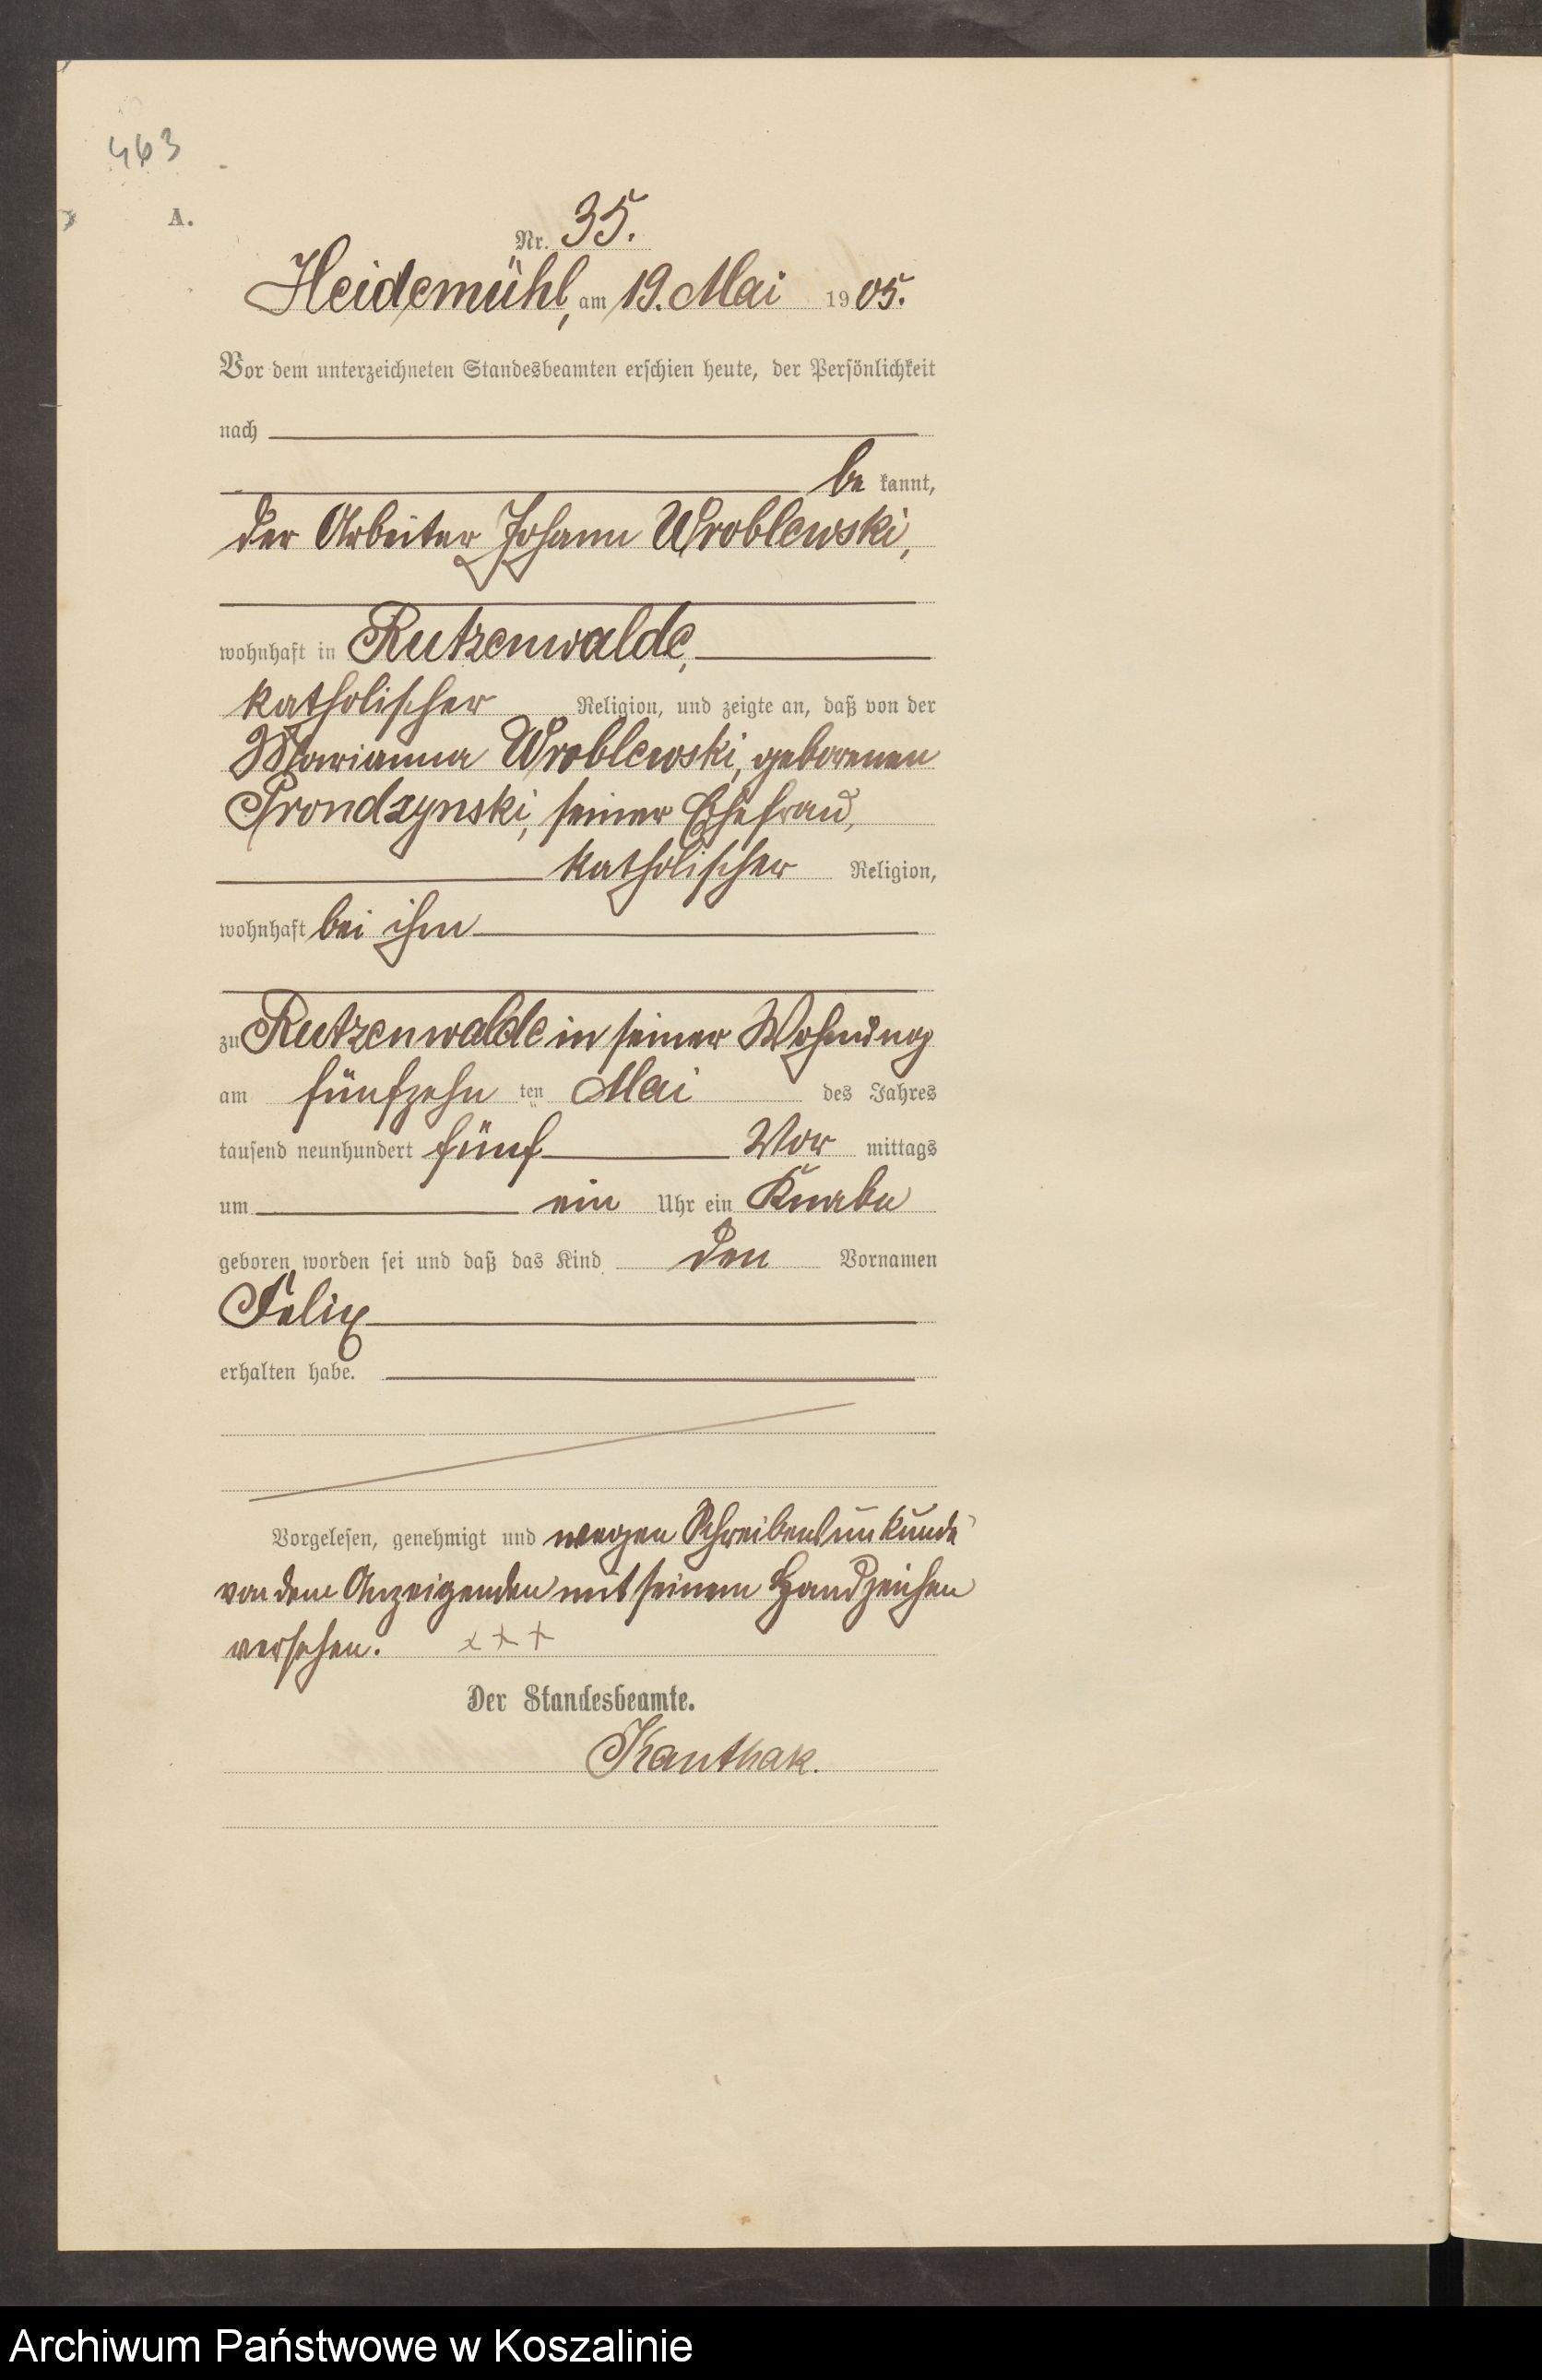 463
A.
Nr. 35.
Heidemühl, am 19. Mai 1905.
Vor dem unterzeichneten Standesbeamten erschien heute, der Persönlichkeit
nach
be kannt,
der Arbeiter Johann Wroblewski,
wohnhaft in Rutzenwalde,
katholischer Religion, und zeigte an, daß von der
Marianna Wroblewski, geborenen
Prondzynski, seiner Ehefrau,
katholischer Religion,
wohnhaft bei ihm
zu Rutzenwalde in seiner Wohnung
am fünfzehn ten Mai des Jahres
tausend neunhundert fünf Vor mittags
um ein Uhr ein Knabe
geboren worden sei und daß das Kind den Vornamen
Felix
erhalten habe.
Vorgelesen, genehmigt und wegen Schreibensunkunde
von dem Anzeigenden mit seinem Handzeichen
versehen. + + +
Der Standesbeamte.
Kanthak.
Archiwum Państwowe w Koszalinie